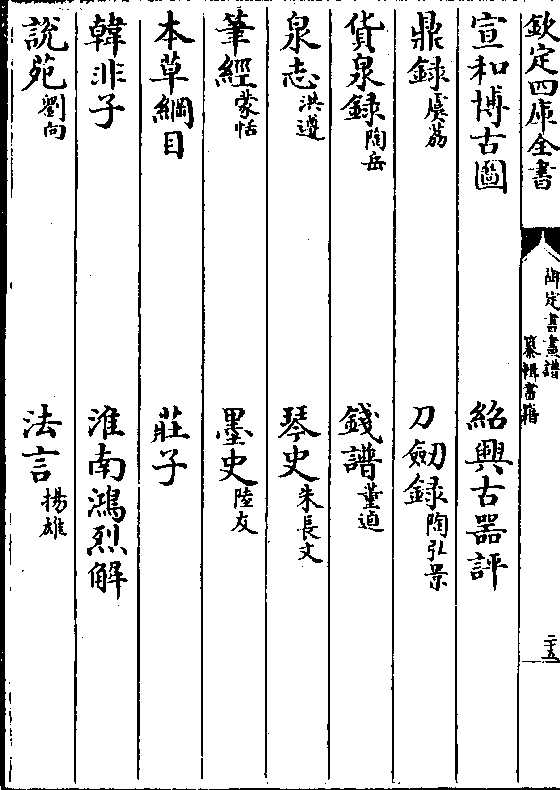 欽定四庫全書
御定書畫譜
纂輯書籍
二五
宣和博古圖
紹興古器評
鼎録虞荔
刀劒録陶弘景
貨泉録陶岳
錢譜董逌
泉志洪遵
琴史朱長文
筆經蒙恬
墨史陸友
本草綱目
莊子
韓非子
淮南鴻烈解
說苑劉向
法言揚雄